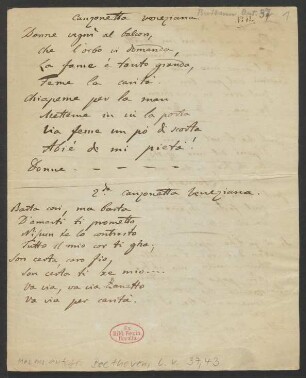 Canzonetta veneziana
37
1
Donne vegnì al balcon,
che l'orbo vi domanda,
La fame è tanto granda,
Feme la carità
Chiapeme per la man
Metteme in su la porta
Via feme un pò di scorta
Abiè de mi pietà!
Donne - - - -
2da canzonetta Veneziana.
Basta così, ma basta
D'amarti ti prometto
Nissun ze lo contrasto
Tutto il mio cor ti gha;
Son certa caro fio,
Son certa ti ze mio...
Va via, va via Zanetto
Va via per carità.
Ex
Biblioth. Regia
Berolin.
autogr. Beethoven, L. v. 37,43